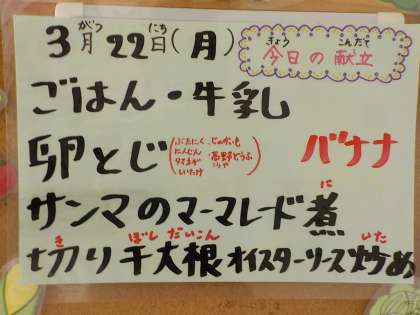 3月22日(月)
がつ にち
きょう こんだて
今日の献立
ごはん・牛乳
卵とじ
ぶたにく、じゃがいも
にんじん
タマネギ・高野どうふ
しいたけ
バナナ
サンマのマーマレード煮
に
き ぼし だいこん いた
切り干大根オイスターソース炒め